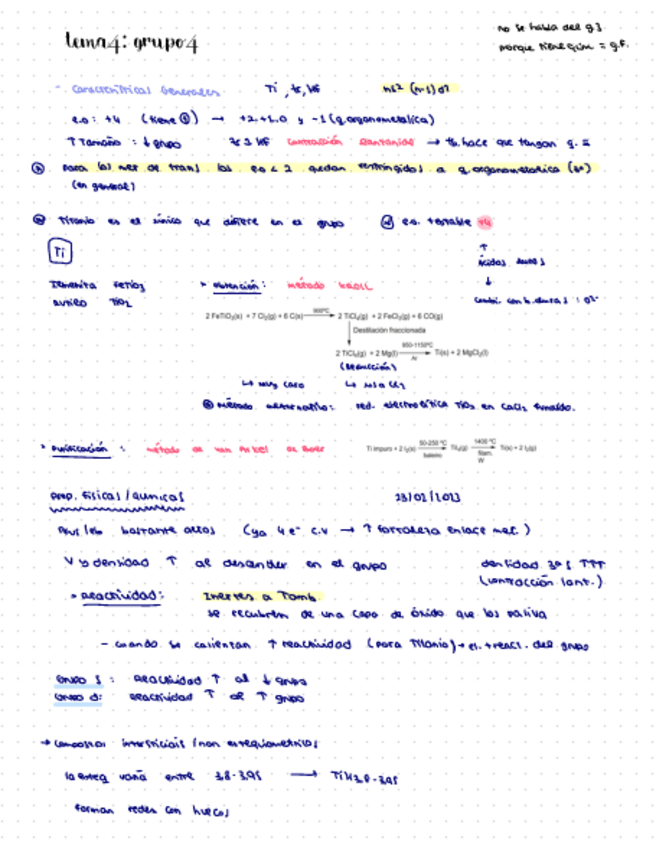 tema 4: grupo 4
no se habla del g3
porque tiene quim = g.f.
- Características Generales Ti, Zr, Hf ns² (n-1)d²
e.o: +4 (tiene 4) → +2,+1,0 y -1 (q.organometalica)
↑ Tamaño : ↓ grupo Zr ≅ Hf contracción lantanida → th. hace que tengan q. =
para los met de trans los e.o < 2 quedan restringidos a q. organometalica
(en general)
Titanio es el único que difiere en el grupo e.o. + estable +4
Ti
ácidos duros
Ilmenita FeTiO₃ > obtención: método kroll
rutilo TiO₂
comb. con b. duras : O²⁻
2 FeTiO₃(s) + 7 Cl₂(g) + 6 C(s) 900ºC → 2 TiCl₄(g) + 2 FeCl₃(g) + 6 CO(g)
Destilación fraccionada
2 TiCl₄(g) + 2 Mg(l) 950-1150ºC Ar → Ti(s) + 2 MgCl₂(l)
(Reducción)
↳ muy caro ↳ usa Cl₂
método alternativo: red. electrolítica TiO₂ en CaCl₂ fundido.
> Purificación : método de van Arkel de Boer
Ti impuro + 2 I₂(s) 50-250 ºC → TiI₄(g) 1400 ºC filam. W → Ti(s) + 2 I₂(g)
prop. físicas/químicas 23/02/2023
Pfus/eb bastante altos (ya 4 e⁻ c.v → ↑ fortaleza enlace met.)
V y densidad ↑ al descender en el grupo densidad 3ª s ↑↑↑
(contracción lant.)
> reactividad: Inertes a Tamb
se recubren de una capa de óxido que los pasiva
- cuando se calientan ↑ reactividad (para Titanio) → el + react. del grupo
Grupo s : reactividad ↑ al ↓ grupo
Grupo d: reactividad ↑ al ↑ grupo
→ compuestos intersticiais / non estequiometricos
la esteq varía entre 3.8-3.95 → TiH3.8-3.95
forman redes con huecos